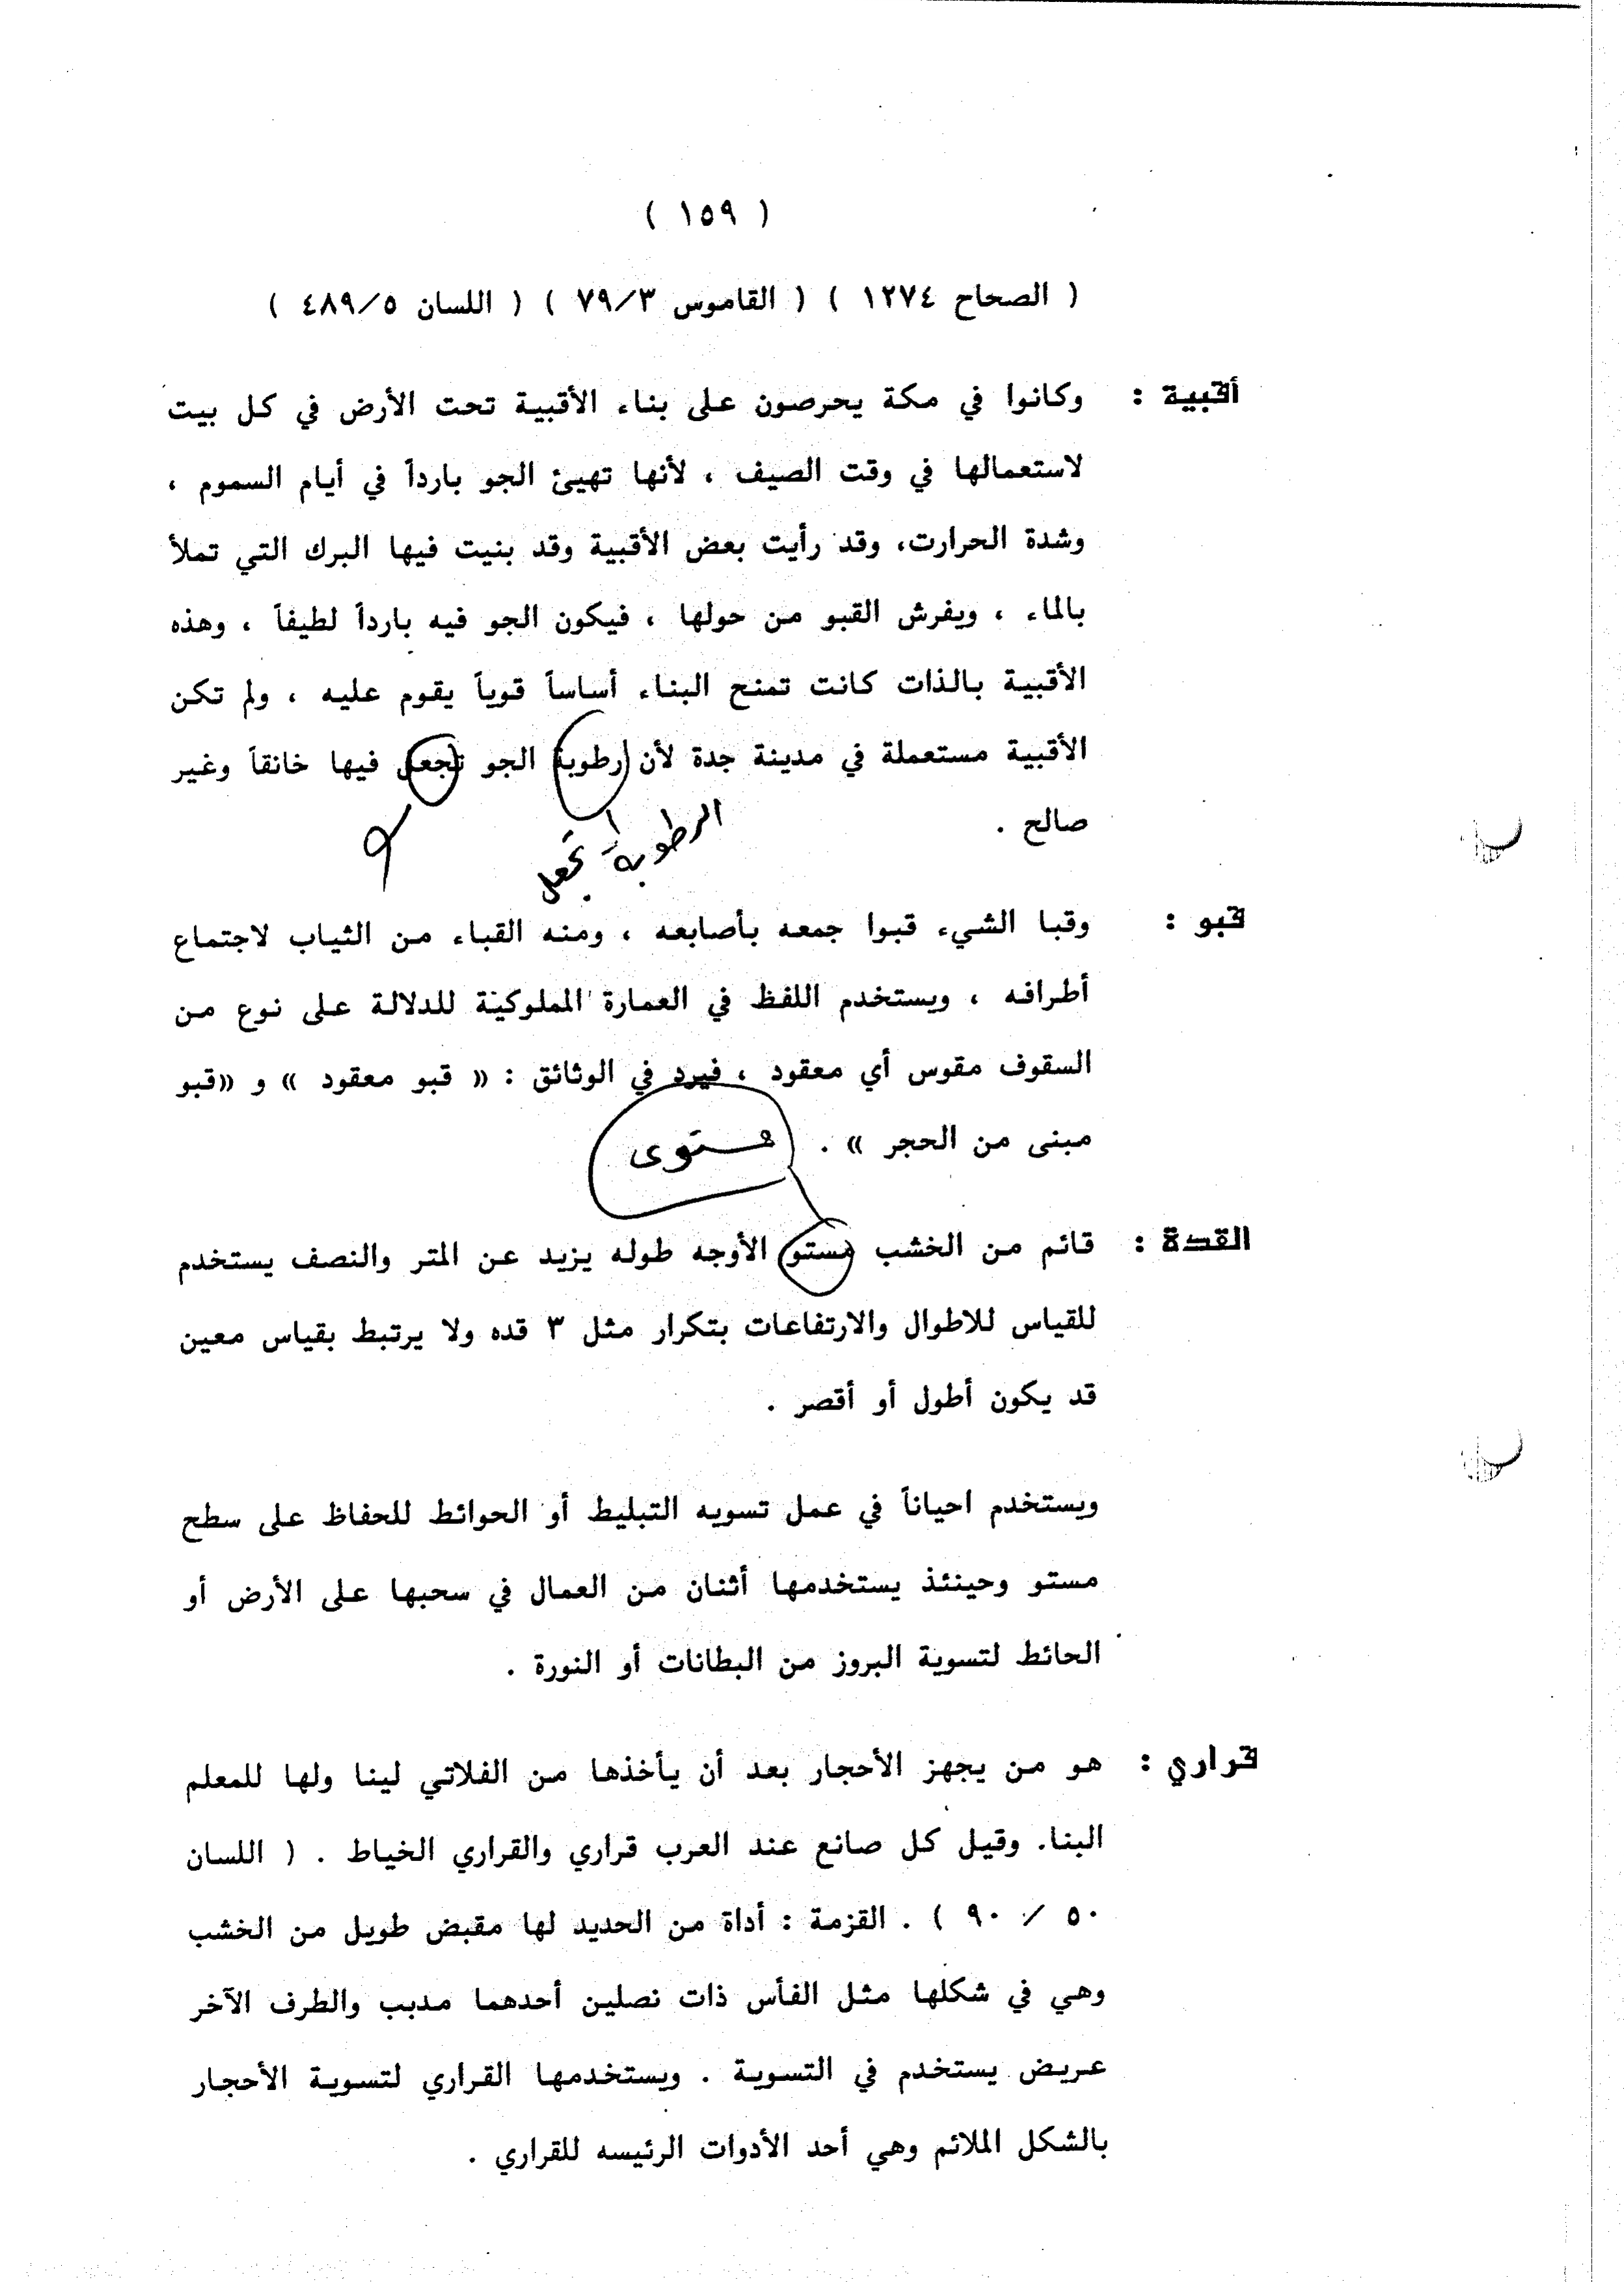 ( ١٥٩ )
( الصحاح ١٢٧٤ ) ( القاموس ٧٩/٣ ) ( اللسان ٤٨٩/٥ )
أقبية : وكانوا في مكة يحرصون على بناء الأقبية تحت الأرض في كل بيت
لاستعمالها في وقت الصيف ، لأنها تهيئ الجو بارداً في أيام السموم ،
وشدة الحرارت، وقد رأيت بعض الأقبية وقد بنيت فيها البرك التي تملأ
بالماء ، ويفرش القبو من حولها ، فيكون الجو فيه بارداً لطيفاً ، وهذه
الأقبية بالذات كانت تمنح البناء أساساً قوياً يقوم عليه ، ولم تكن
الأقبية مستعملة في مدينة جدة لأن رطوبة الجو تجعل فيها خانقاً وغير
صالح .
الرطوبة
تجعل
قبو : وقبا الشيء قبوا جمعه بأصابعه ، ومنه القباء من الثياب لاجتماع
أطرافه ، ويستخدم اللفظ في العمارة المملوكية للدلالة على نوع من
السقوف مقوس أي معقود ، فيرد في الوثائق : « قبو معقود » و «قبو
مبنى من الحجر » .
مستوى
القدة : قائم من الخشب مستو الأوجه طوله يزيد عن المتر والنصف يستخدم
للقياس للاطوال والارتفاعات بتكرار مثل ٣ قده ولا يرتبط بقياس معين
قد يكون أطول أو أقصر .
ويستخدم احياناً في عمل تسويه التبليط أو الحوائط للحفاظ على سطح
مستو وحينئذ يستخدمها أثنان من العمال في سحبها على الأرض أو
الحائط لتسوية البروز من البطانات أو النورة .
قراري : هو من يجهز الأحجار بعد أن يأخذها من الفلاتي لينا ولها للمعلم
البنا. وقيل كل صانع عند العرب قراري والقراري الخياط . ( اللسان
٥٠ / ٩٠ ) . القزمة : أداة من الحديد لها مقبض طويل من الخشب
وهي في شكلها مثل الفأس ذات نصلين أحدهما مدبب والطرف الآخر
عريض يستخدم في التسوية . ويستخدمها القراري لتسوية الأحجار
بالشكل الملائم وهي أحد الأدوات الرئيسه للقراري .